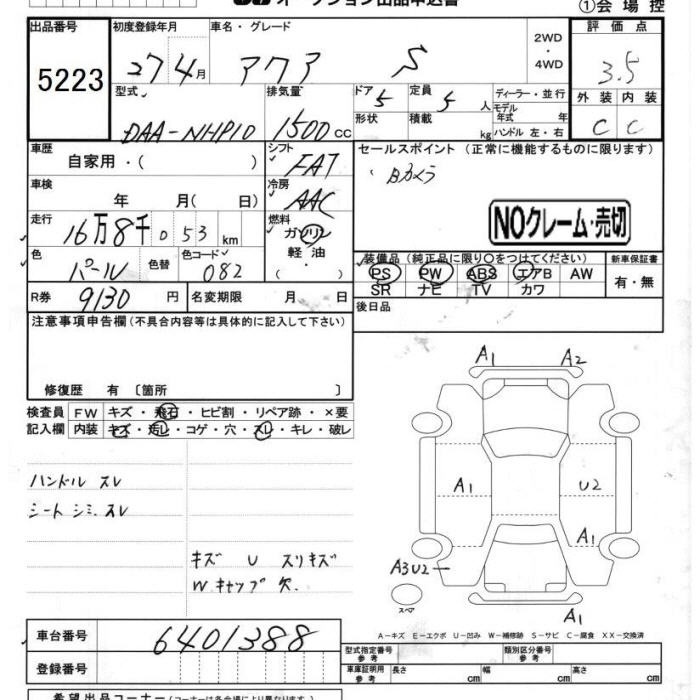 オークション出品申込書
①会場控
出品番号 初度登録年月 車名・グレード 2WD・4WD 評価点
5223 27 4月 アクア S 3.5
型式 排気量 ドア 定員 ディーラー・並行 外装 内装
DAA-NHP10 1500cc 5 5人 モデル年式 年 C C
形状 積載 kg ハンドル 左・右
車歴 シフト セールスポイント (正常に機能するものに限ります)
自家用・( ) FAT Bカメラ
車検 冷房
年 月( 日) AAC
NOクレーム・売切
走行 燃料
16万8千053km ガソリン
色 色替 色コード 軽油 装備品 (純正品に限り○をつけてください) 新車保証書
パール 082 ・ PS PW ABS エアB AW 有・無
SR ナビ TV カワ
R券 9130円 名変期限 月 日 後日品
注意事項申告欄 (不具合内容等は具体的に記入して下さい)
修復歴 有 〔箇所 〕
検査員 FW キズ・飛石・ヒビ割・リペア跡・×要
記入欄 内装 キズ・汚レ・コゲ・穴・スレ・キレ・破レ
A1 A2
ハンドル スレ
A1 U2
シート シミ、スレ
A1
キズ U スリキズ
A3U2
W.キャップ欠
スペア
A1
A-キズ E-エクボ U-凹み W-補修跡 S-サビ C-腐食 XX-交換済
車台番号 6401388
型式指定番号 参考 類別区分番号 参考
登録番号 車庫証明用 参考 長さ cm 幅 cm 高さ cm
希望出品コーナー (コーナーは各会場により異なります)